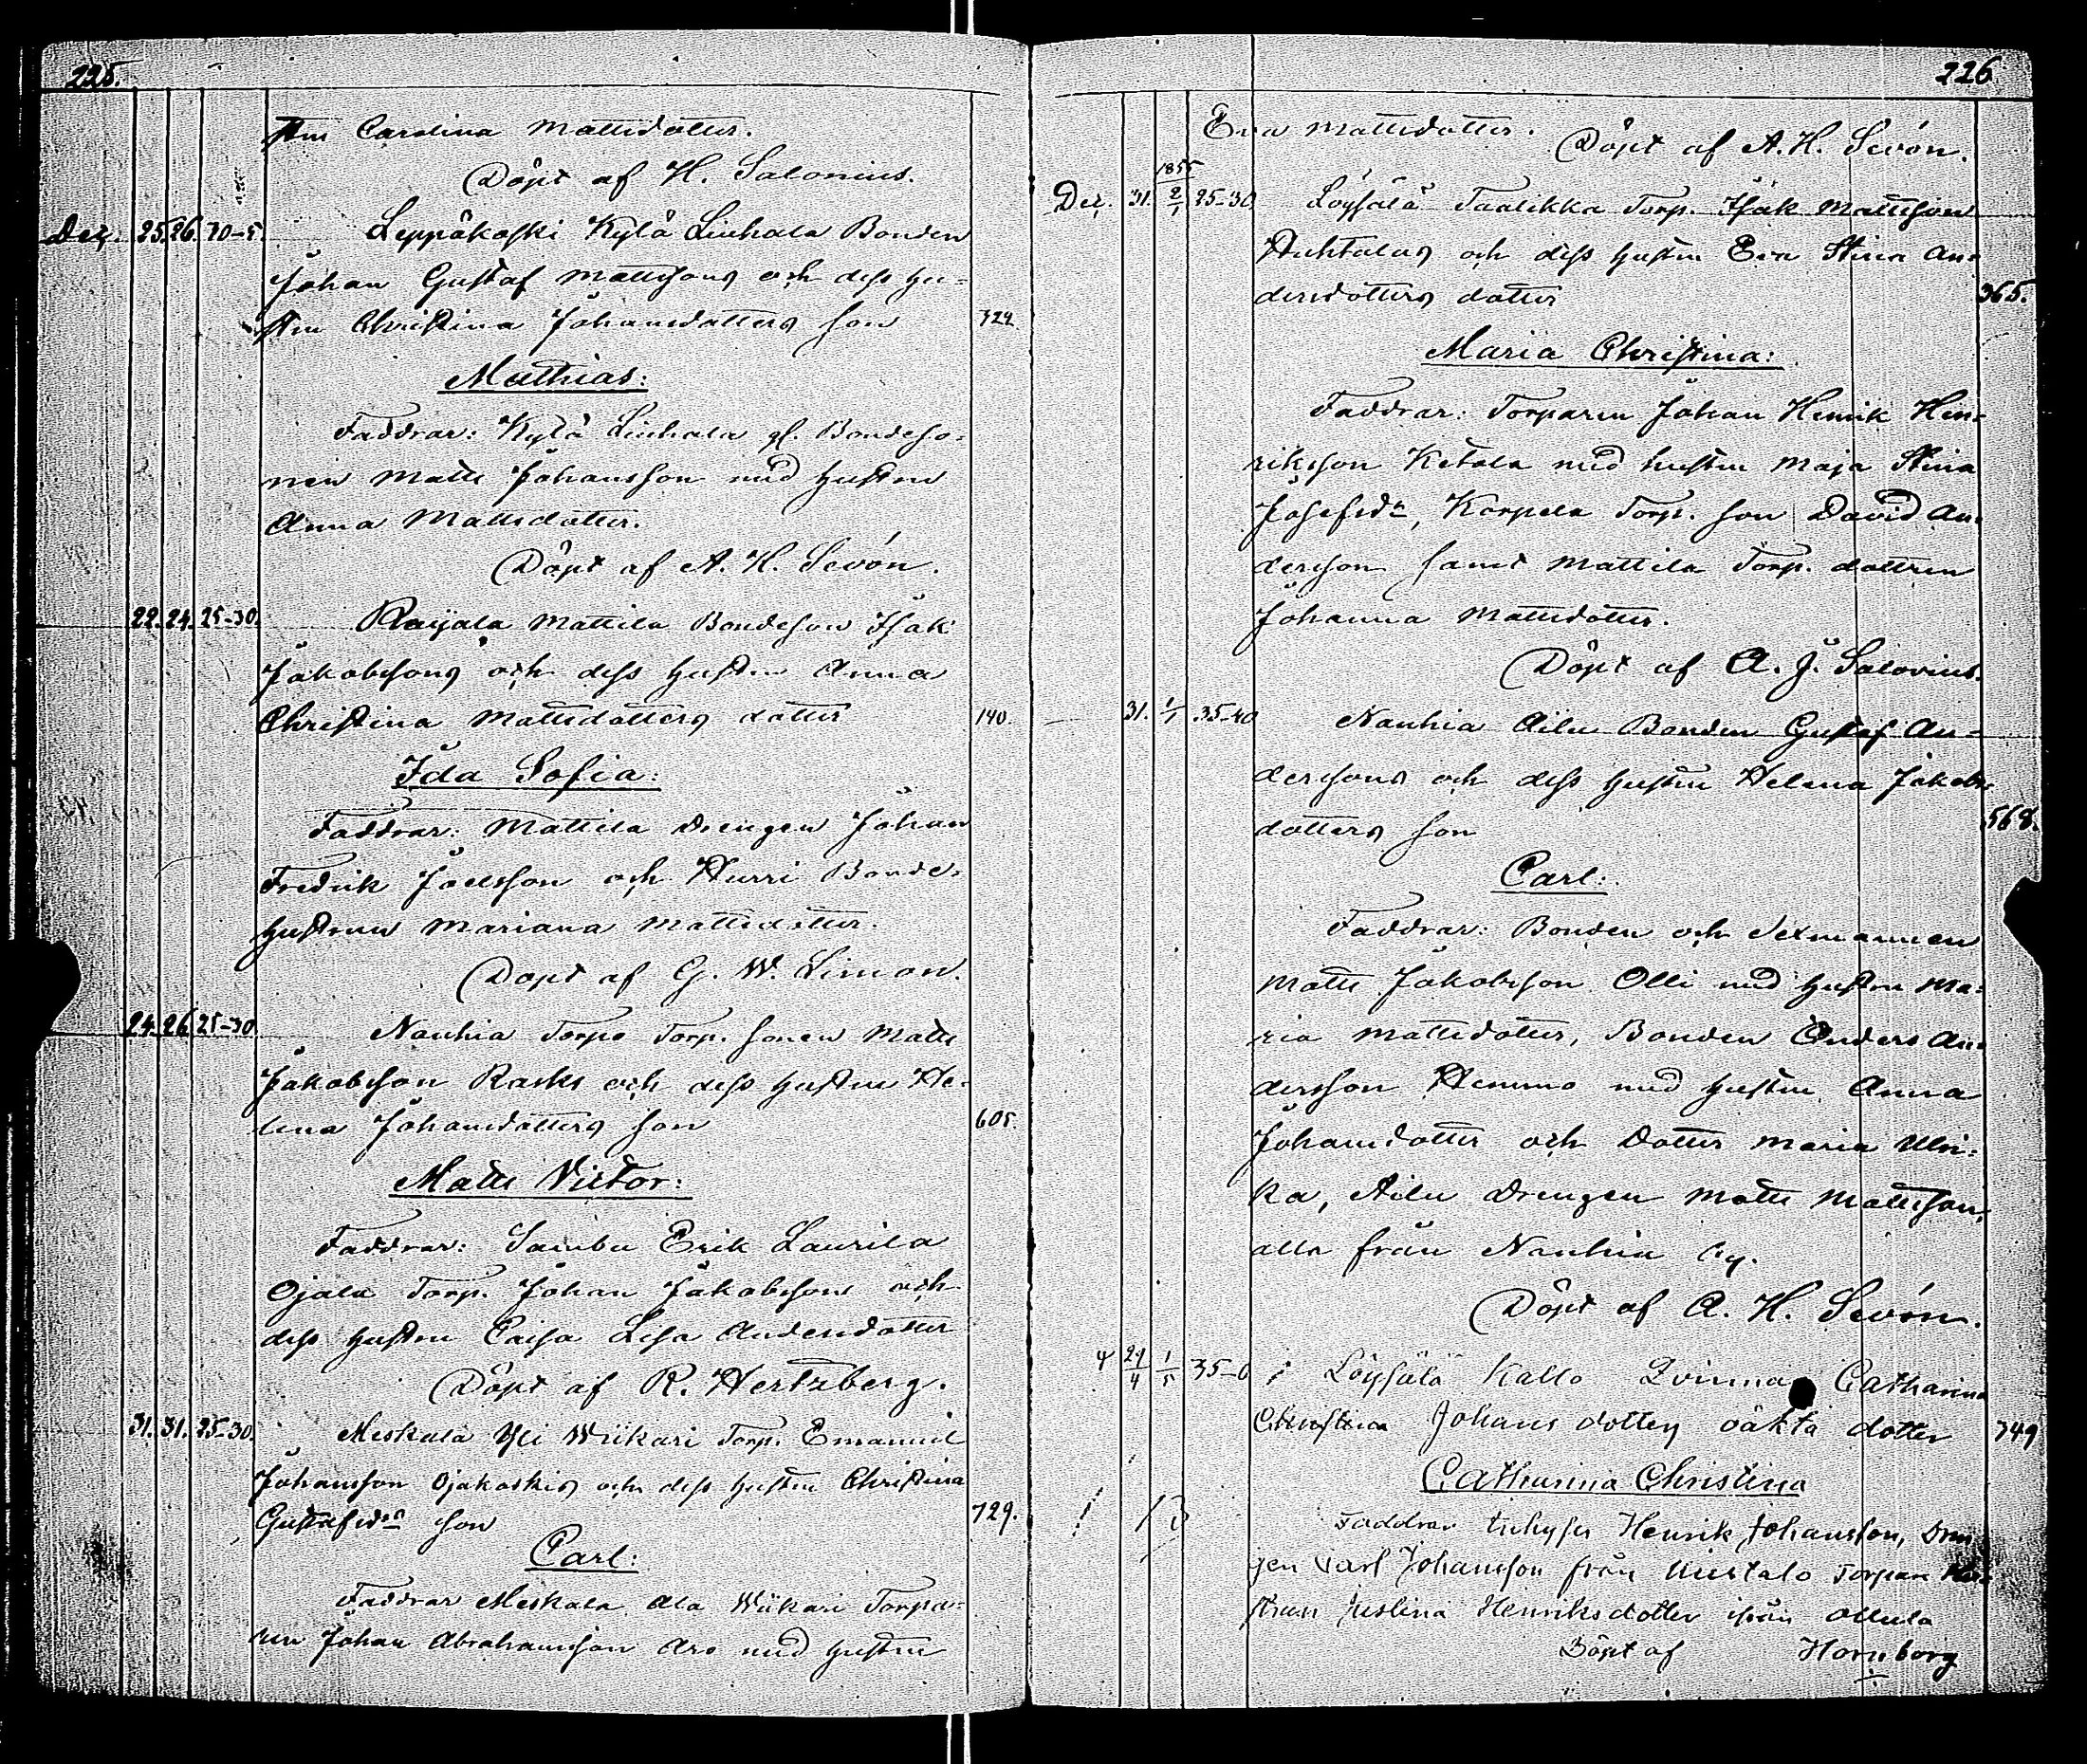 225.
stru Carolina Mattsdotter.
Döpt af H. Salonius.
Dec. 25. 26. 30-5. Leppäkoski Kylä Liuhala Bonden
Johan Gustaf Mattsons och dess hu-
stru Christina Johansdotters son 322
Mathias:
Faddrar: Kylä Liuhala gl. Bondeso-
nen Matts Johansson med hustru
Anna Mattsdotter.
Döpt af A. H. Sevón.
22. 24. 25-30. Raijala Mattila Bondeson Isak
Jakobsons och dess hustru Anna
Christina Mattsdotters dotter 140.
Ida Sofia:
Faddrar: Mattila Drengen Johan
Fredrik Joelsson och Hurri Bonde-
hustrun Mariana Mattsdotter.
Döpt af G. W. Limon.
24. 26. 25-30. Nauhia Torpo Torp. sonen Matts
Jakobsson Rasks och dess hustru He-
lena Johansdotters son 605.
Matts Victor:
Faddrar: Sambu Erik Laurila
Ojala Torp. Johan Jakobsson och
dess hustru Caisa Lisa Andersdotter
Döpt af R. Hertzberg.
31. 31. 25-30. Meskala Yli Wiikari Torp. Emanuel
Johansson Ojakoskis och dess hustru Christina
Gustafsdr son 729.
Carl:
Faddrar Meskala Ala Wiikari Torpa-
ren Johan Abrahamsson Aro med hustru
226.
Eva Mattsdotter.
Döpt af A. H. Sevón.
1855
Dec. 31. 2/1 25-30. Löysälä Taalikka Torp. Isak Mattsson
Huhtalas och dess hustru Eva Stina An-
dersdotters dotter 365.
Maria Christina:
Faddrar: Torparen Johan Henrik Hen-
riksson Ketola med hustru Maja Stina
Josefsdr, Korpela Torp. son David An-
dersson samt Mattila Torp. dottren
Johanna Mattsdotter.
Döpt af A. J. Salovius.
31. 1/1 35-40 Nauhia Ailu Bonden Gustaf An-
dersons och dess hustru Helena Jakobs-
dotters son 568.
Carl:
Faddrar: Bonden och Sexmannen
Matts Jakobsson Olli med hustru Ma-
ria Mattsdotter, Bonden Anders An-
dersson Hemmo med hustru Anna
Johansdotter och Dotter Maria Ulri-
ka, Ailu Drengen Matts Mattsson,
alla från Nauhia by.
Döpt af A. H. Sevón.
29/4 1/5 35-0 Löysälä Kallo Qvinnas Catharina
Christina Johans dotters oäkta dotter 749
Catharina Christina
Faddrar Inhyses Henrik Johansson, Dren
gen Carl Johansson från Uustalo Torpare Hu-
strun Justina Henriksdotter ifrån Ollula
Döpt af Hornborg